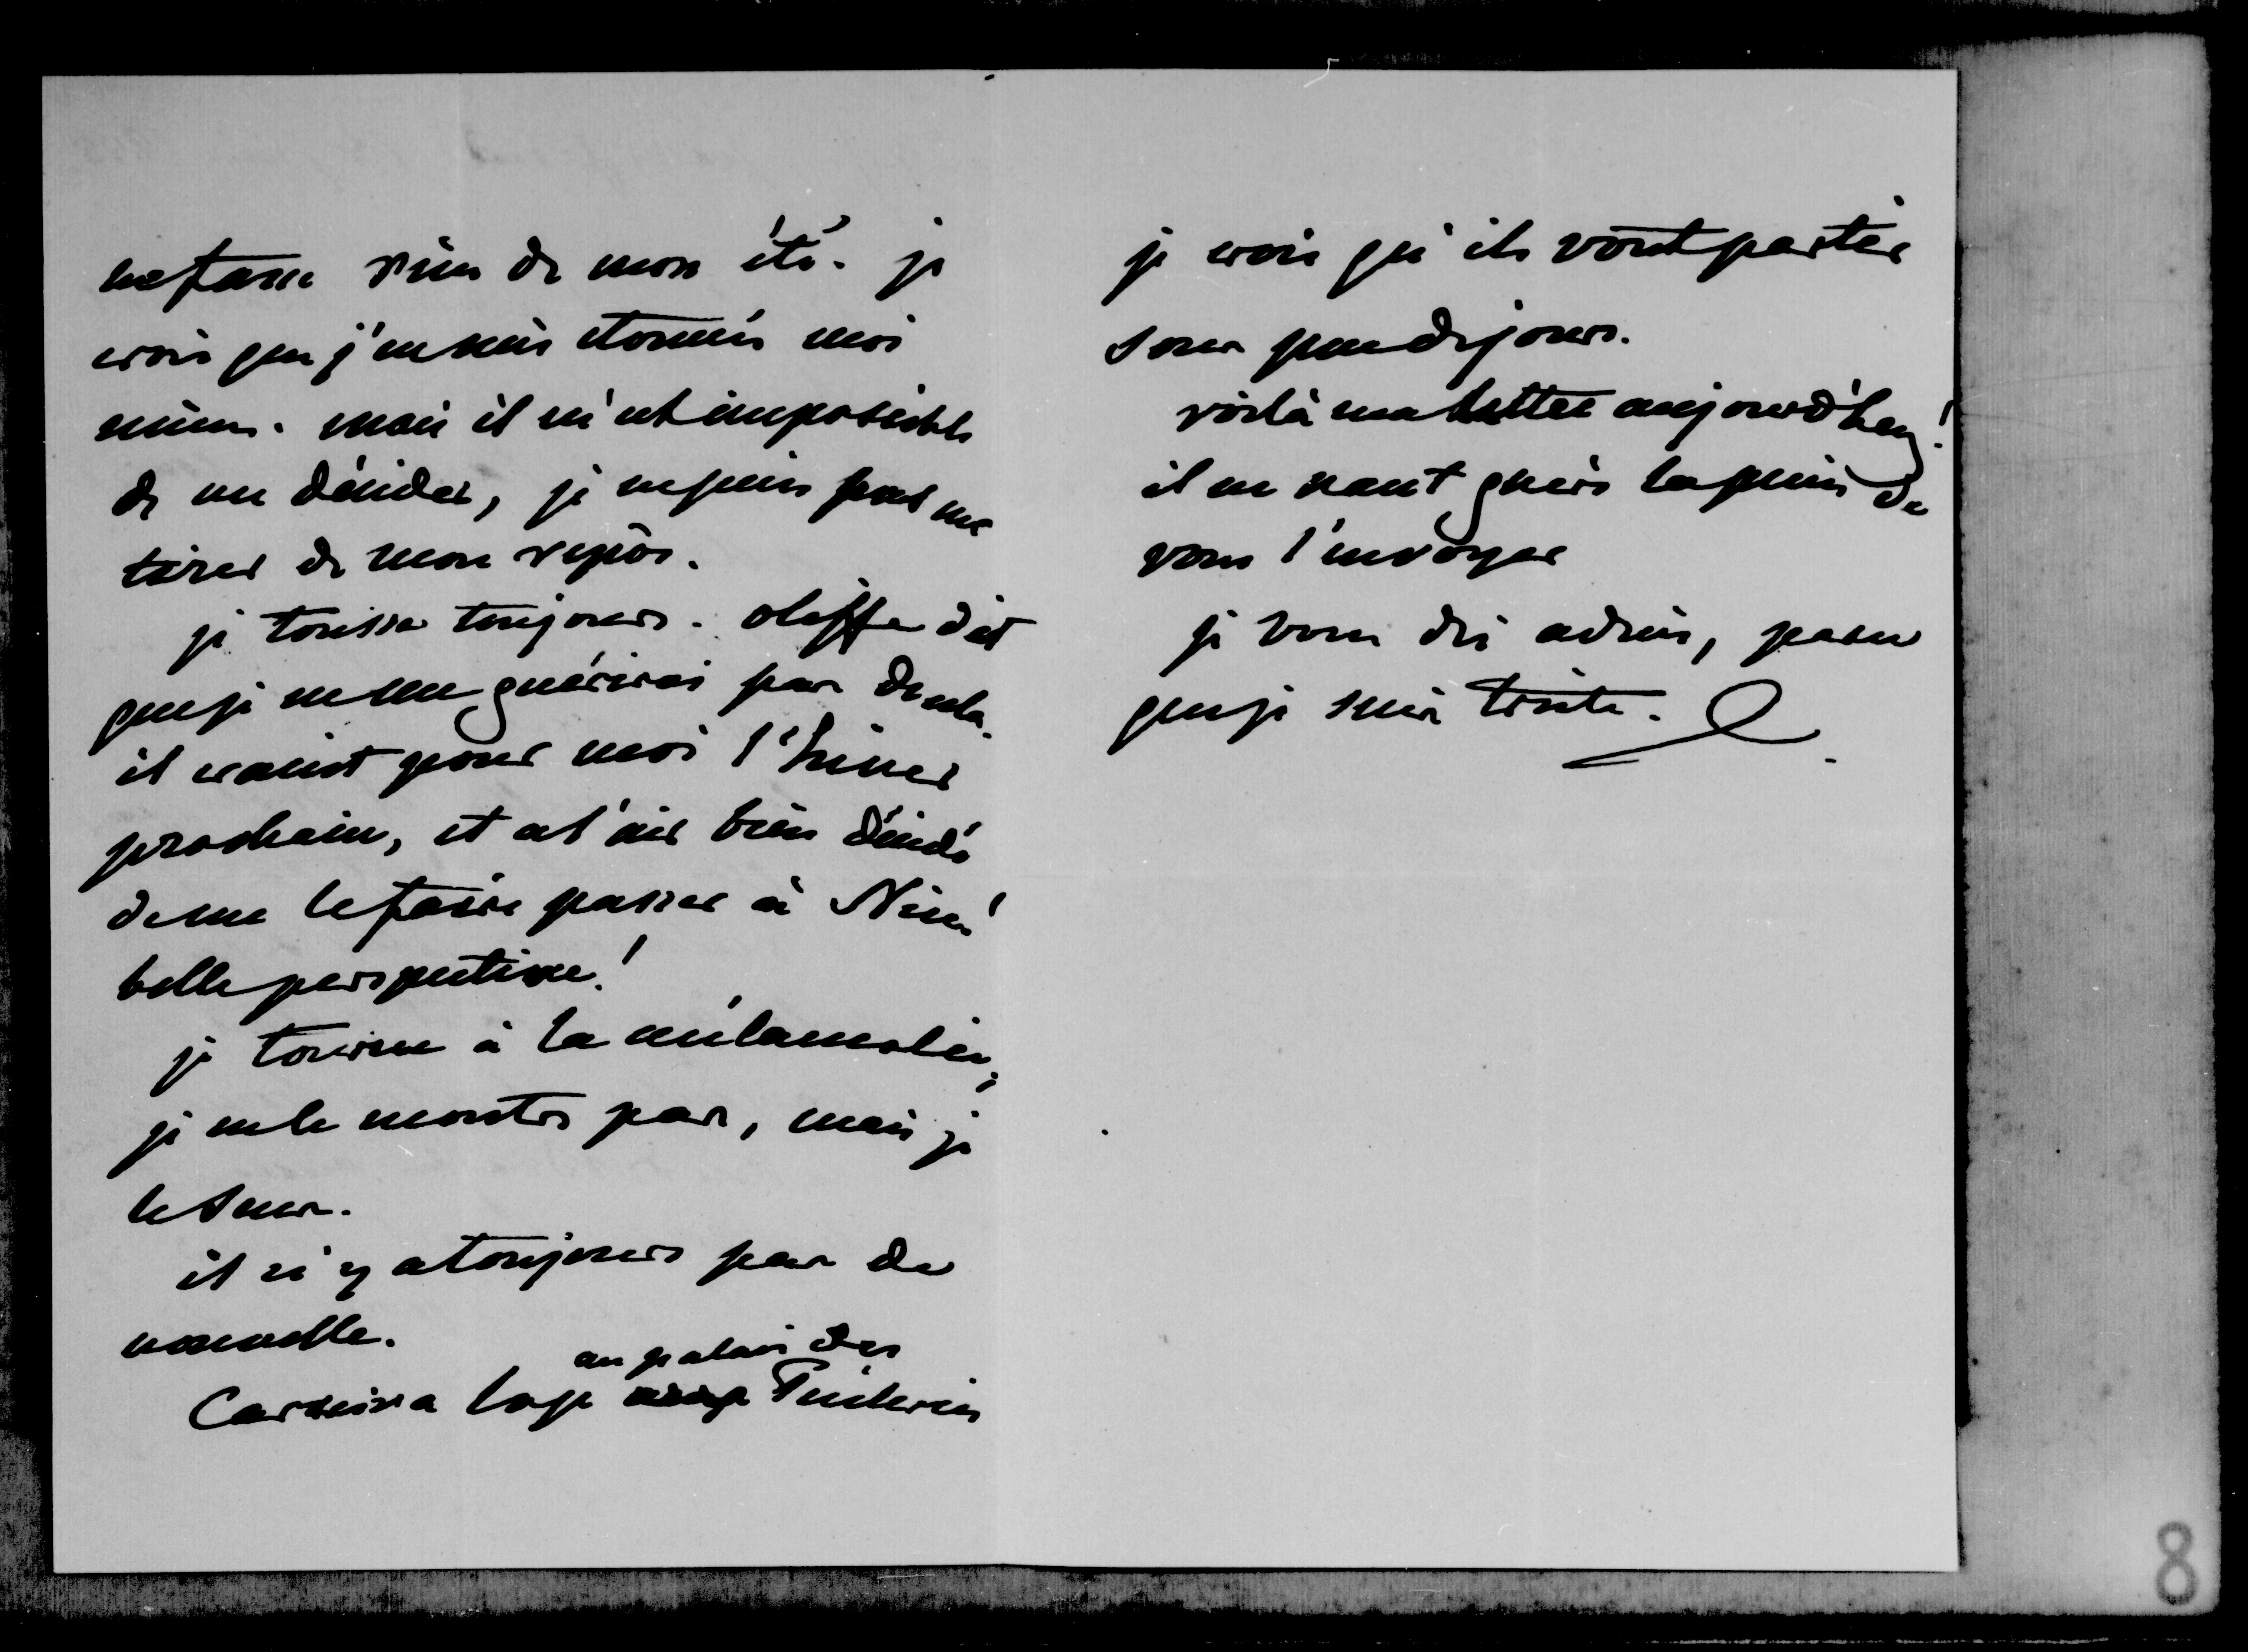 ne fasse rien de mon été. je
crois que j'en suis étonnée moi
même. mais il m'est impossible
de me décider, je ne puis pas me
tirer de mon repos.
je tousse toujours. oliffe dit
que je ne me guérirai pas de cela.
il craint pour moi l'hiver
prochain, et a l'air bien décidé
de me le faire passer à Nice!
belle perspective!
je tourne à la mélancolie,
je ne le montre pas, mais je
le sens.
il n'y a toujours pas de
nouvelle.
au palais des
Carreira loge Tuileries
je crois qu'ils vont partir
sous peu de jours.
voilà ma lettre aujourd'hey!
il ne vaut guère la peine de
vous l'envoyer
je vous dis adieu, parce
que je suis triste.